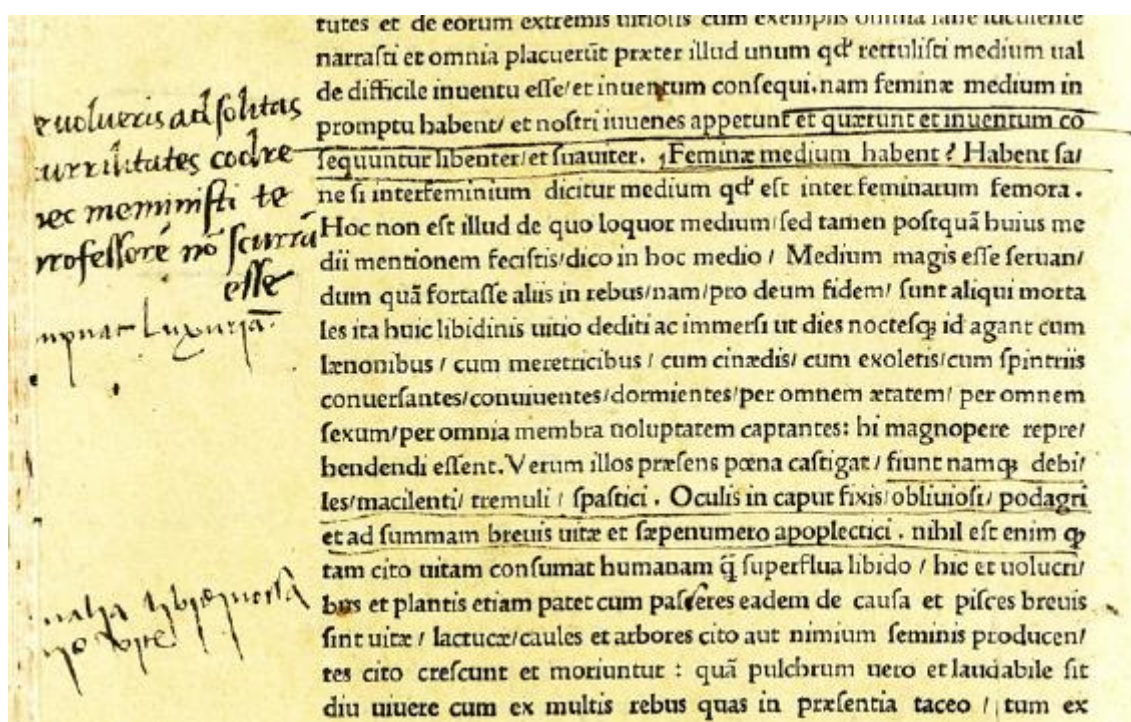 tutes et de eorum extremis uitiosis cum exemplis omnia sane luculente
narraſti et omnia placuerūt præter illud unum qđ rettuliſti medium ual
de difficile inuentu eſſe/et inuentum conſequi. nam feminæ medium in
promptu habent/ et noſtri iuuenes appetunt et quærunt et inuentum cō
ſequuntur libenter/et ſuauiter. Feminæ medium habent? Habent ſa/
ne ſi interfeminium dicitur medium qđ eſt inter feminarum femora.
Hoc non eſt illud de quo loquor medium/ſed tamen poſtquā huius me
dii mentionem feciſtis/dico in hoc medio / Medium magis eſſe ſeruan/
dum quā fortaſſe aliis in rebus/nam/pro deum fidem/ ſunt aliqui morta
les ita huic libidinis uitio dediti ac immerſi ut dies nocteſqꝫ id agant cum
lænonibus / cum meretricibus / cum cinædis/ cum exoletis/cum ſpintriis
conuerſantes/conuiuentes/dormientes/per omnem ætatem/ per omnem
ſexum/per omnia membra uoluptatem captantes: hi magnopere repre/
hendendi eſſent. Verum illos præſens pœna caſtigat / fiunt namqꝫ debi/
les/macilenti/ tremuli / ſpaſtici. Oculis in caput fixis/obliuioſi/ podagri
et ad ſummam breuis uitæ et ſæpenumero apoplectici. nihil eſt enim ꝙ
tam cito uitam conſumat humanam q̄ ſuperflua libido / hic et uolucri/
bus et plantis etiam patet cum paſſeres eadem de cauſa et piſces breuis
ſint uitæ / lactucæ/caules et arbores cito aut nimium ſeminis producen/
tes cito creſcunt et moriuntur : quā pulchrum uero et laudabile ſit
diu uiuere cum ex multis rebus quas in præſentia taceo / tum ex
uolueris ad ſolitas
urrilitates codre
nec meminiſti te
rofeſſorē nō ſcurrā
eſſe
Luxuriā.